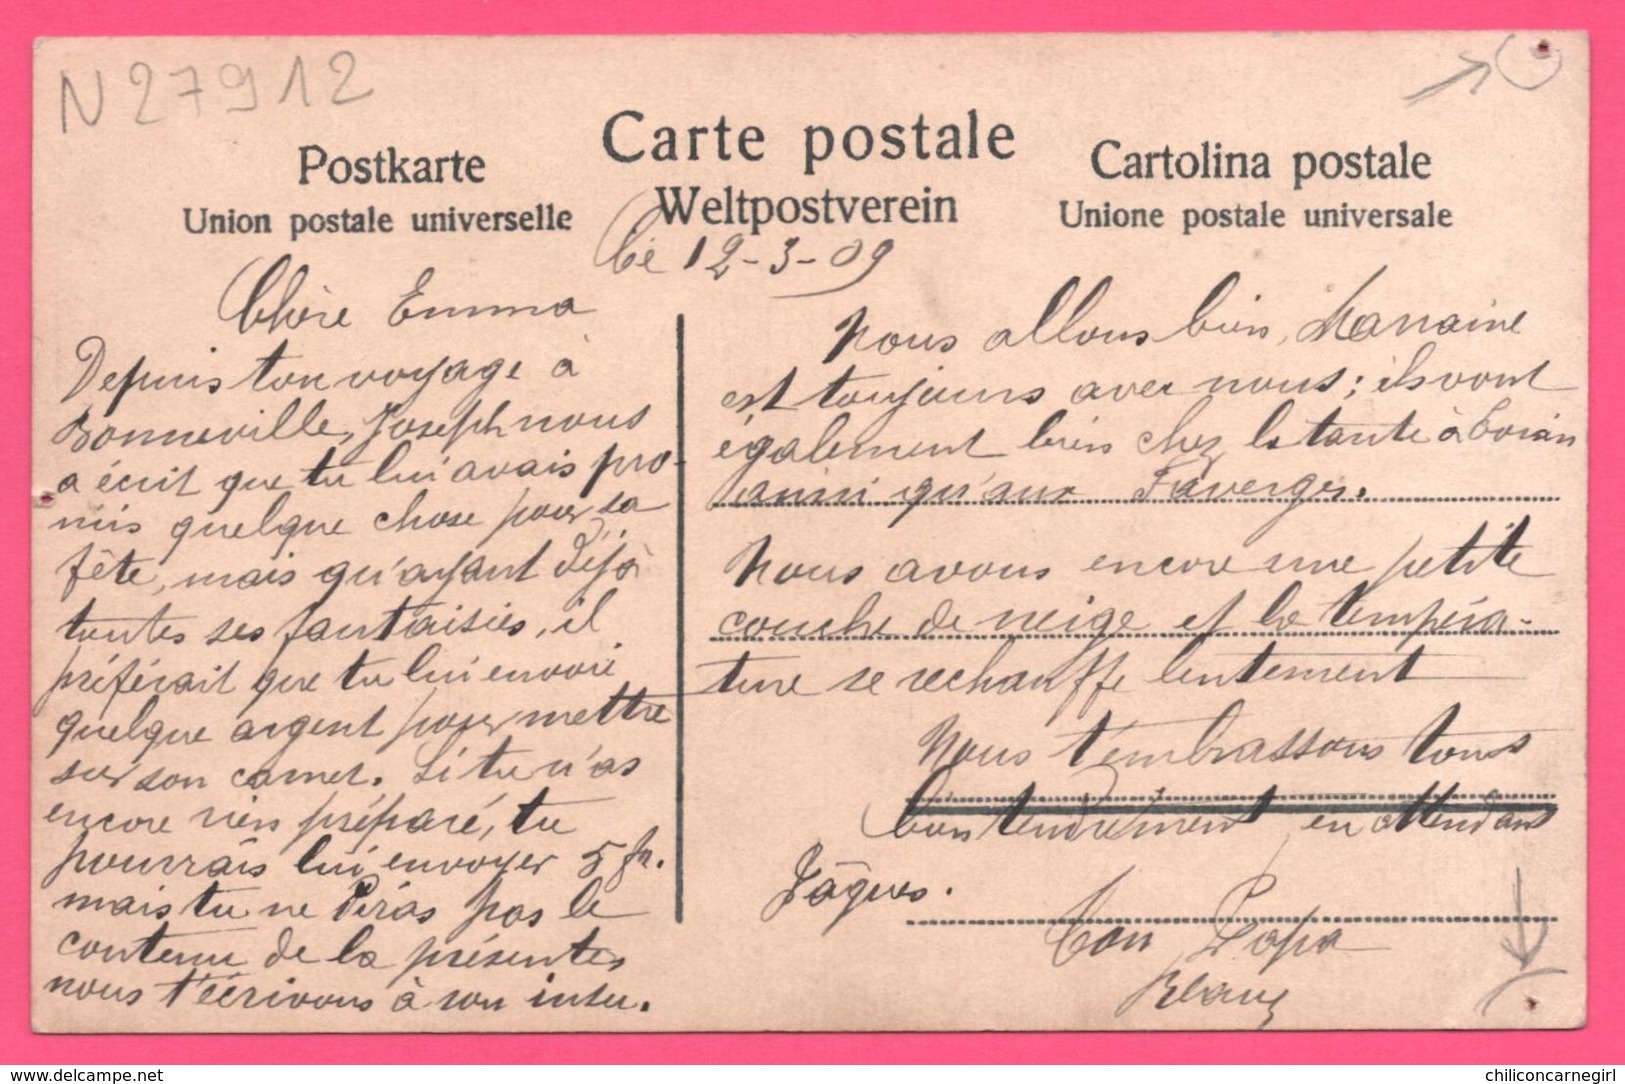 N27912
Carte postale
Postkarte
Weltpostverein
Cartolina postale
Union postale universelle
Unione postale universale
le 12-3-09
Chère Emma
Depuis ton voyage à
Bonneville, Joseph nous
a écrit que tu lui avais pro-
mis quelque chose pour sa
fête, mais qu'ayant déjà
toutes ses fantaisies, il
préférait que tu lui envoie
quelque argent pour mettre
sur son carnet. Si tu n'as
encore rien préparé, tu
pourrais lui envoyer 5 fr.
mais tu ne diras pas le
contenu de la présente,
nous t'écrivons à son insu.
Nous allons bien, Marraine
est toujours avec nous; ils vont
également bien chez la tante à Evian
ainsi qu'aux Faverges.
Nous avons encore une petite
couche de neige et la tempéra-
ture se rechauffe lentement
Nous t'embrassons tous
bien tendrement en attendant
Pâques.
Ton Papa
delcampe.net
chiliconcarnegirl